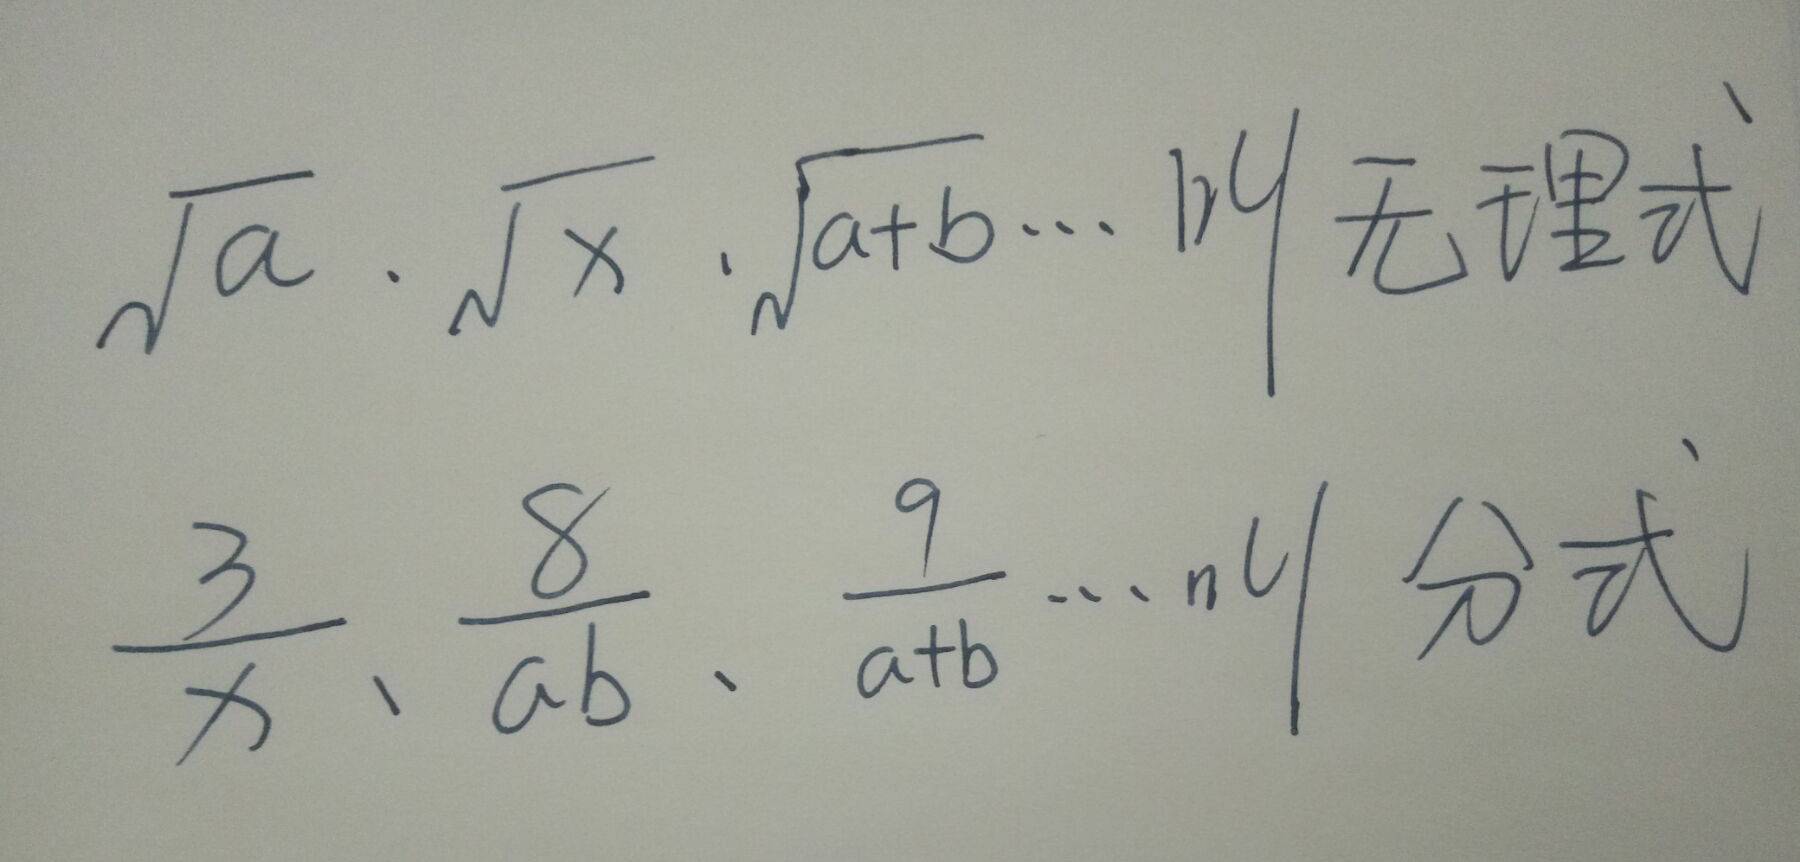 √a、√x、√(a+b)…叫无理式
3/x、8/ab、9/(a+b)…叫分式